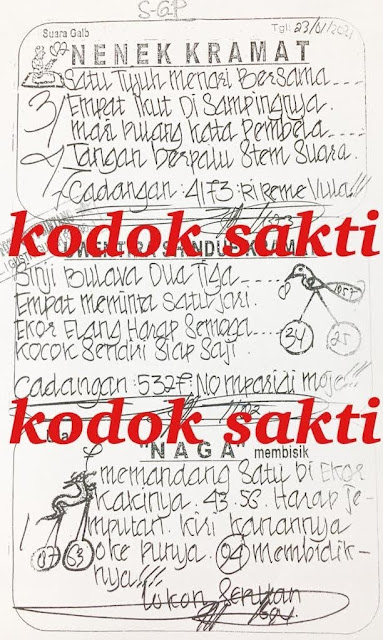 S-GP
Suara Gaib
Tgl: 23/01/2021
NENEK KRAMAT
Satu Tujuh menari Bersama
Empat Ikut Di Sampingnya.
mari bulang kata Pembela
Tangan berpalu Stem Suara.
Cadangan: 4173:
kodok sakti
Biji Bulava Dua Tiga
Empat meminta Satu jari.
1957
Ekor Elang Harap Semoga
34
25
kocok Sendiri Siap Saji
Cadangan: 532
kodok sakti
"NAGA" membisik
memandang Satu Di Ekor
kakinya. 43.53. Harap Je-
mputan. kiri kanannya
oke punya. 94 membidik-
nya!!!!
67
63